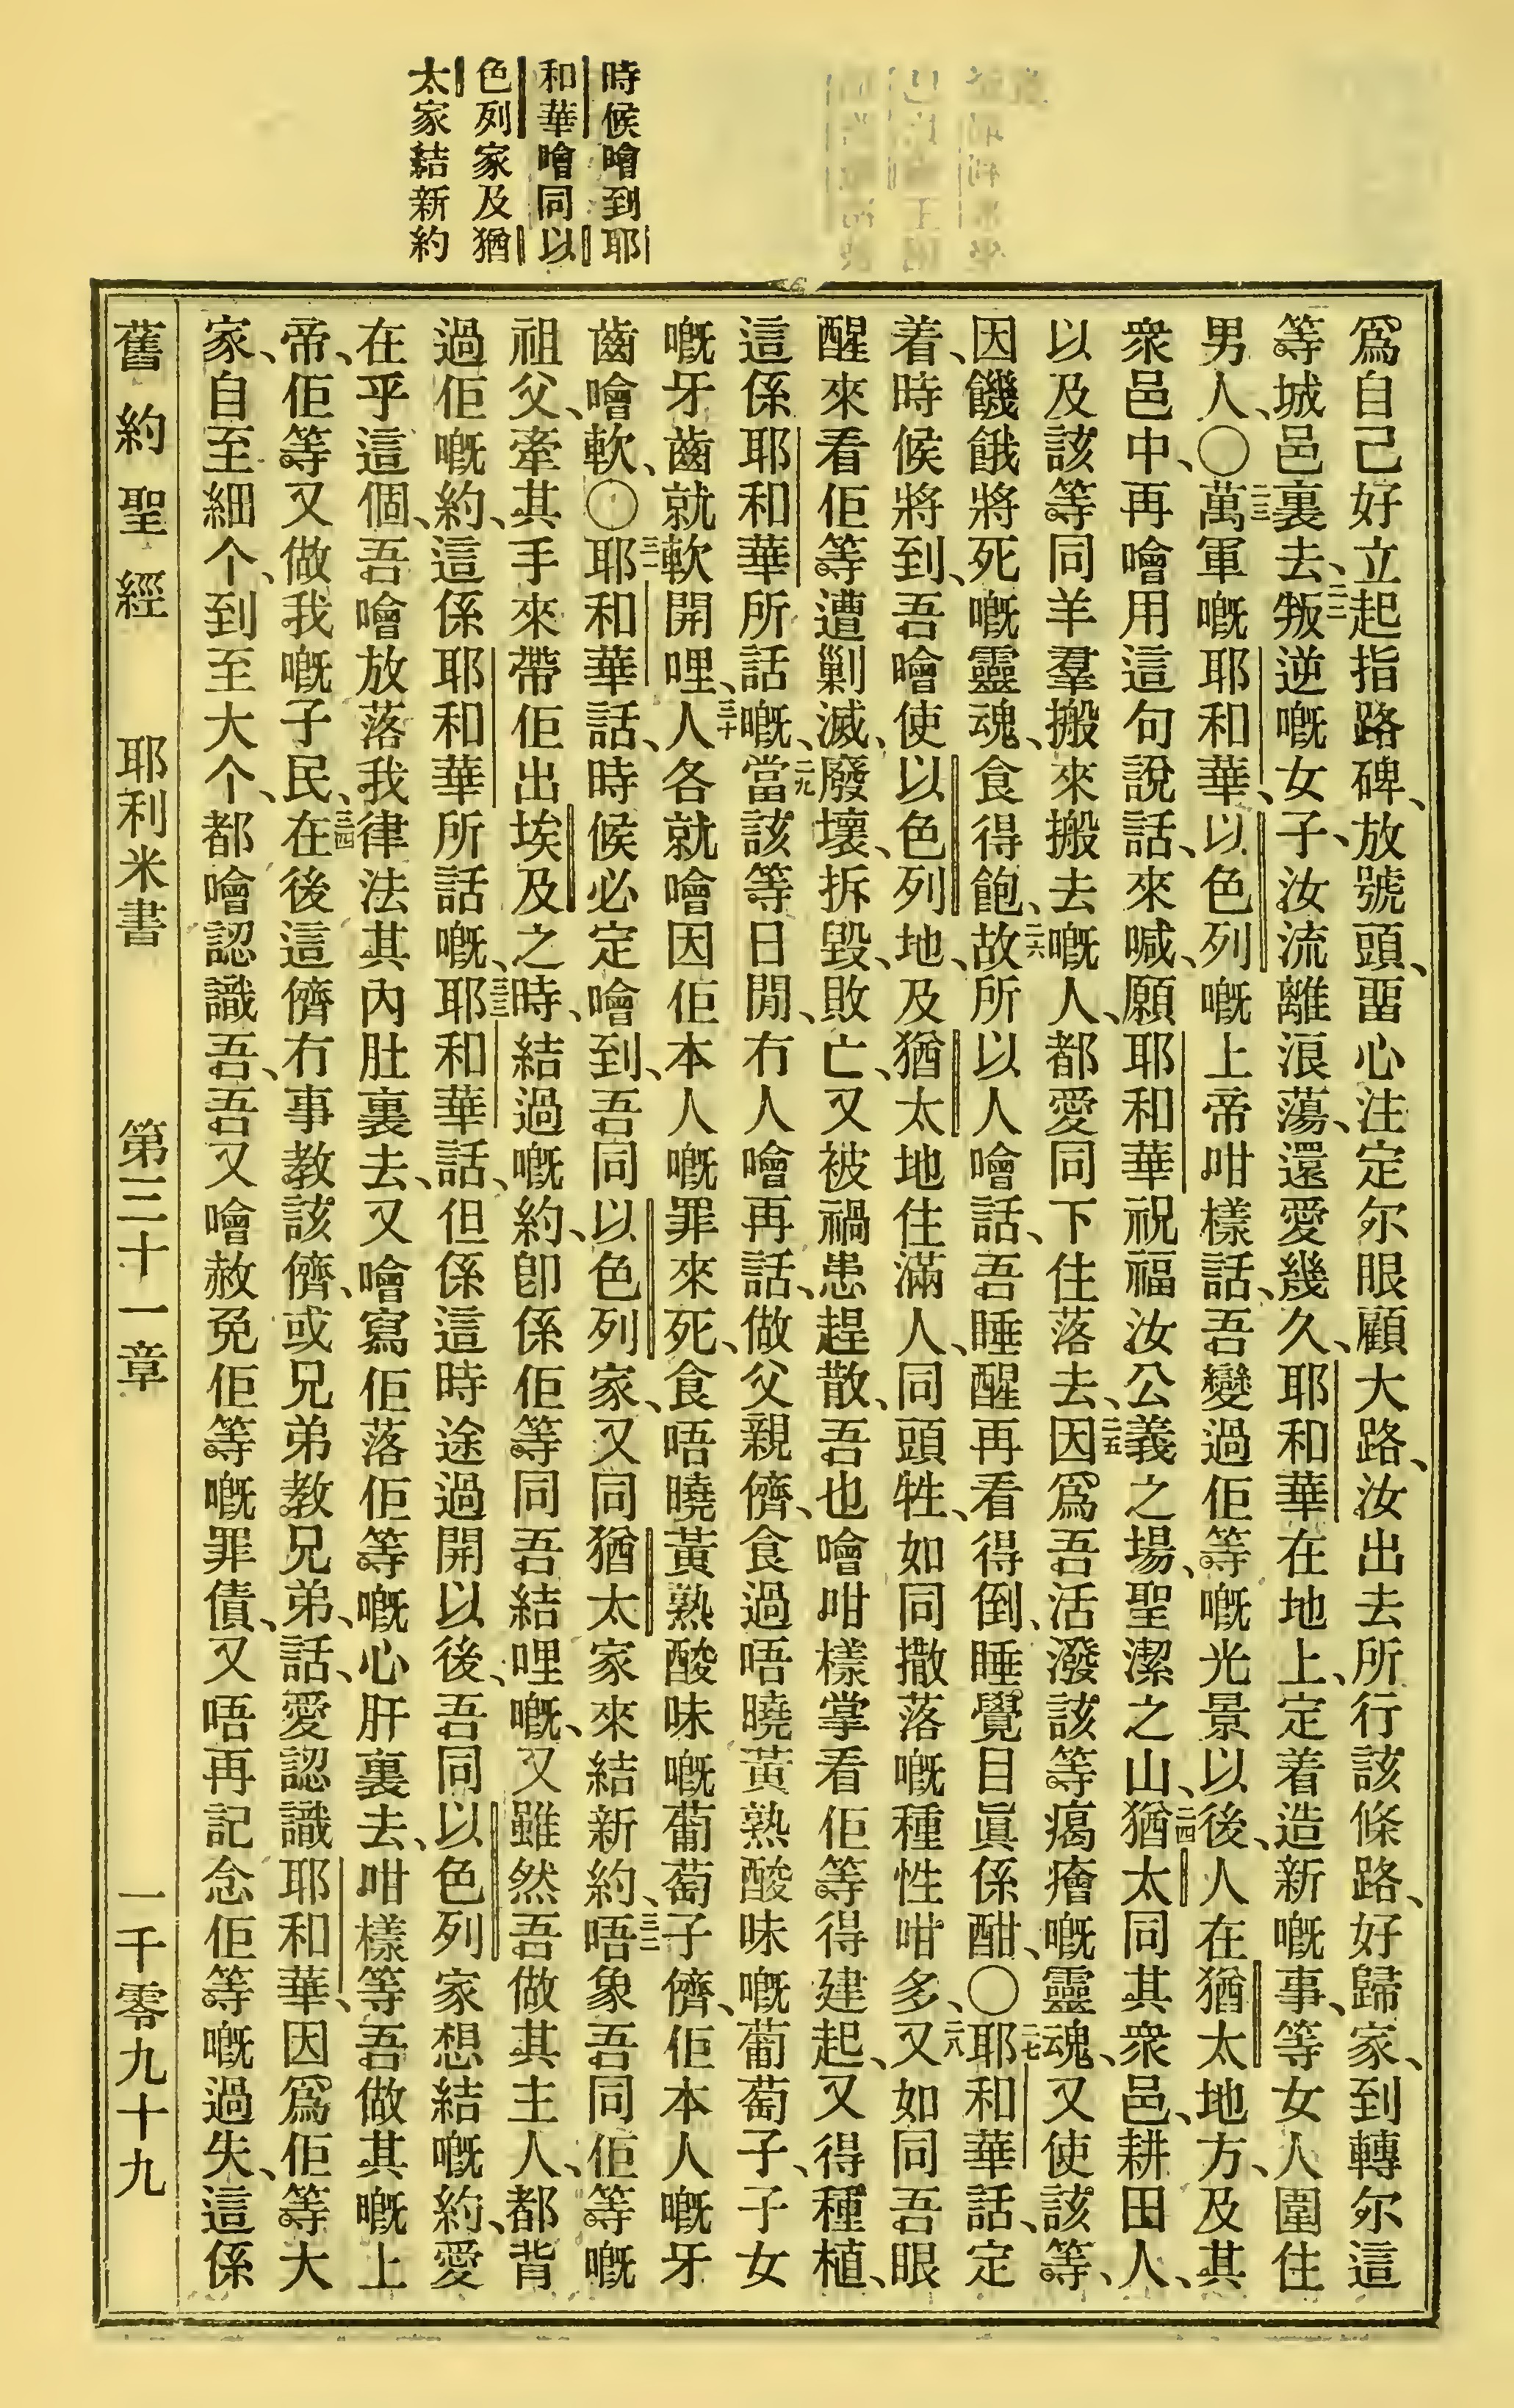 時候噲到耶
和華噲同以
色列家及猶
太家結新約
爲自己好立起指路碑、放號頭、畱心注定尔眼顧大路、汝出去所行該條路、好歸家、到轉尔這
等城邑裏去、二二叛逆嘅女子、汝流離浪蕩、還愛幾久、耶和華在地上、定着造新嘅事、等女人圍住
男人、○二三萬軍嘅耶和華、以色列嘅上帝咁樣話、吾變過佢等嘅光景以後、人在猶太地方、及其
衆邑中、再噲用這句說話、來喊、願耶和華祝福汝公義之場、聖潔之山、二四猶太同其衆邑、耕田人、
以及該等同羊羣搬來搬去嘅人、都愛同下住落去、二五因爲吾活潑該等癘癐嘅靈魂、又使該等、
因饑餓將死嘅靈魂、食得飽、二六故所以人噲話、吾睡醒再看得倒、睡覺目眞係酣、○二七耶和華話、定
着、時候將到、吾噲使以色列地、及猶太地住滿人、同頭牲、如同撒落嘅種性咁多、二八又如同吾眼
醒來看佢等遭剿滅、廢壞、拆毀、敗亡、又被禍患趕散、吾也噲咁樣掌看佢等得建起、又得種植、
這係耶和華所話嘅、二九當該等日閒、冇人噲再話、做父親儕、食過唔曉黃熟酸味嘅葡萄子、子女
嘅牙齒就軟開哩、三十人各就噲因佢本人嘅罪來死、食唔曉黃熟酸味嘅葡萄子儕、佢本人嘅牙
齒噲軟、○三一耶和華話、時候必定噲到、吾同以色列家、又同猶太家來結新約、三二唔象吾同佢等嘅
祖父、牽其手來帶佢出埃及之時、結過嘅約、卽係佢等同吾結哩嘅、又雖然吾做其主人、都背
過佢嘅約、這係耶和華所話嘅、三三耶和華話、但係這時途過開以後、吾同以色列家想結嘅約、愛
在乎這個、吾噲放落我律法其內肚裏去、又噲寫佢落佢等嘅心肝裏去、咁樣等吾做其嘅上
帝、佢等又做我嘅子民、三四在後這儕冇事教該儕、或兄弟教兄弟、話、愛認識耶和華、因爲佢等大
家、自至細个、到至大个、都噲認識吾、吾又噲赦免佢等嘅罪債、又唔再記念佢等嘅過失、這係
舊約聖經 耶利米書 第三十一章 一千零九十九